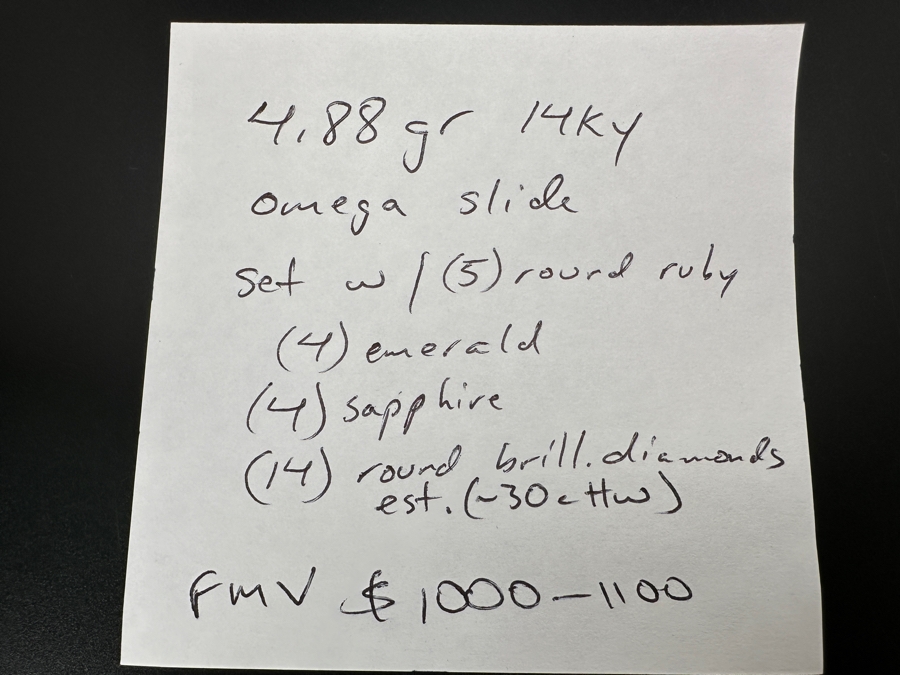 4.88 gr 14Ky
omega slide
set w/ (5) round ruby
(4) emerald
(4) sapphire
(14) round brill. diamonds
est. (~30cttw)
FMV $1000-1100